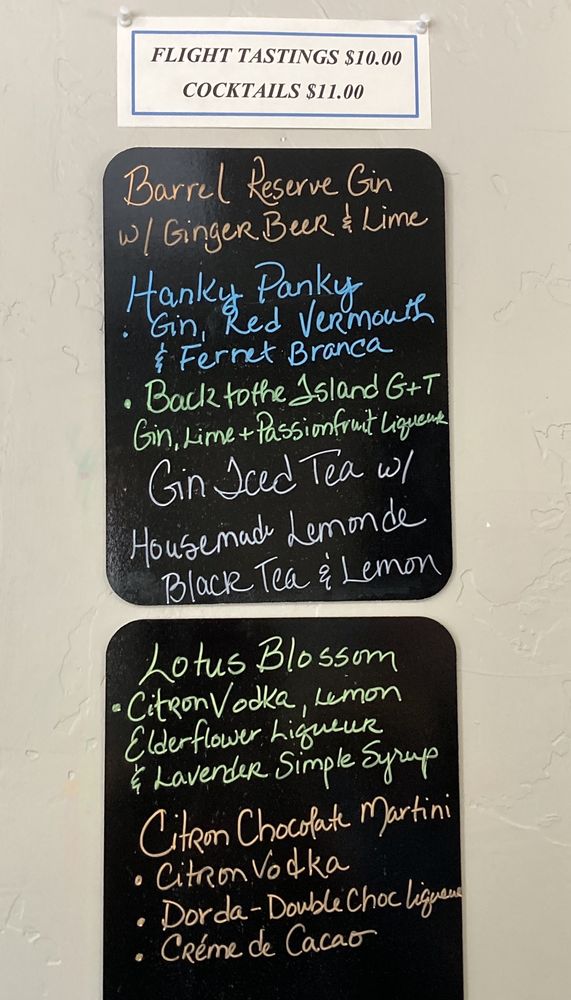 FLIGHT TASTINGS $10.00
COCKTAILS $11.00
Barrel Reserve Gin
w/ Ginger Beer & Lime
Hanky Panky
• Gin, Red Vermouth
& Fernet Branca
• Back to the Island G+T
Gin, Lime + Passionfruit Liqueur
Gin Iced Tea w/
Housemade Lemonde
Black Tea & Lemon
Lotus Blossom
• Citron Vodka, Lemon
Elderflower Liqueur
& Lavender Simple Syrup
Citron Chocolate Martini
• Citron Vodka
• Dorda - Double Choc Liqueur
• Créme de Cacao